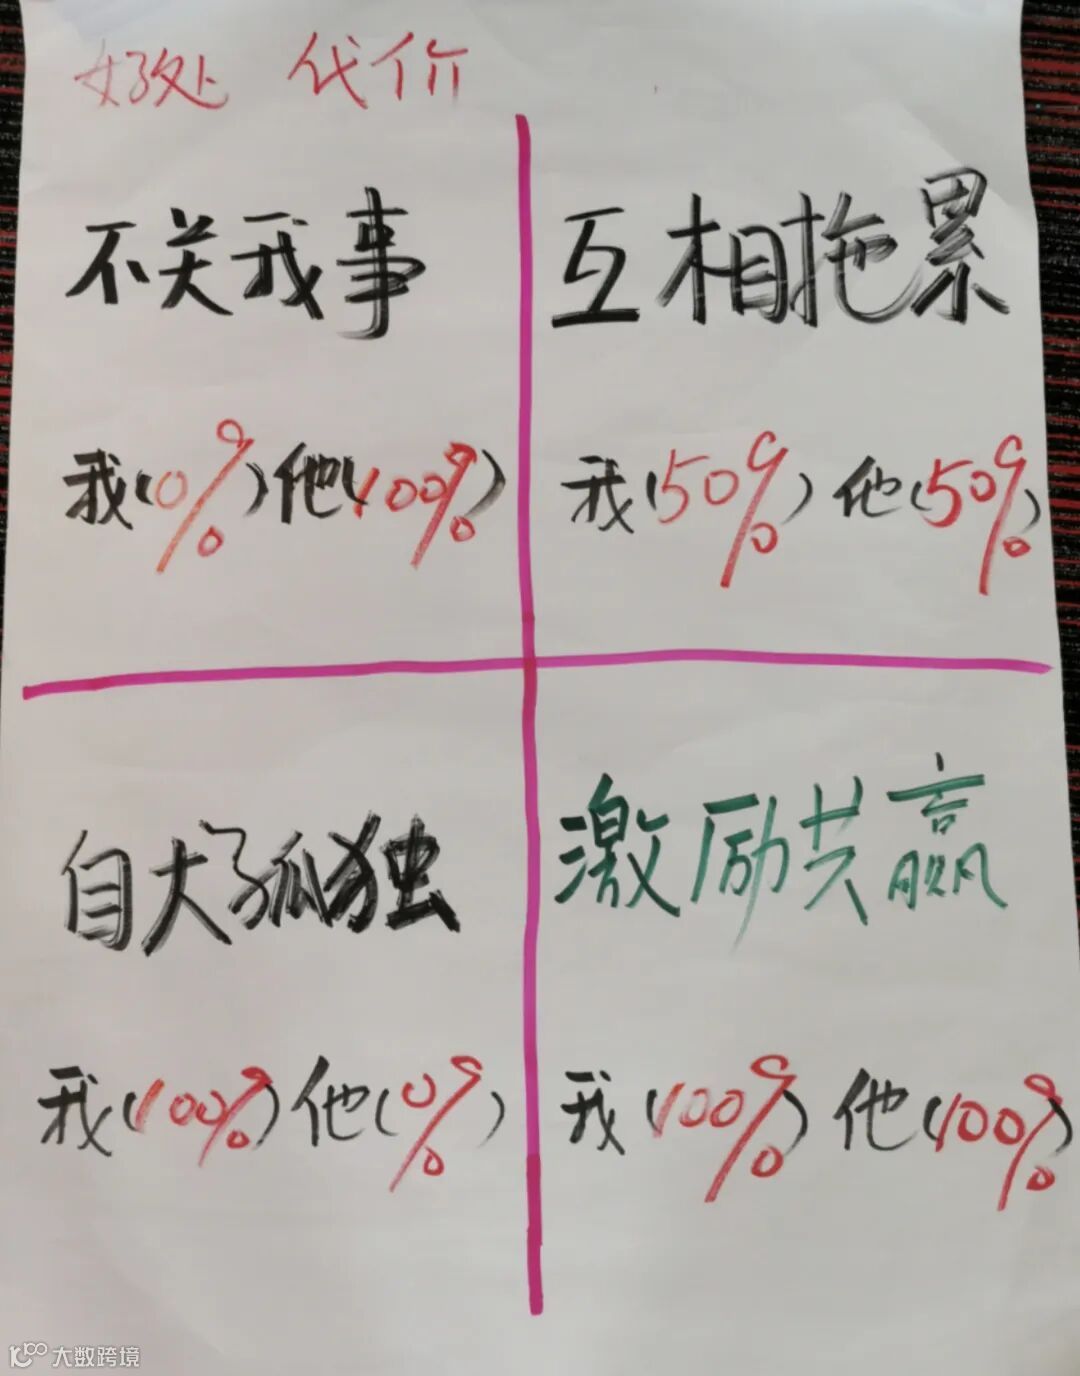 好处 代价
不关我事
我(0%)他(100%)
互相拖累
我(50%)他(50%)
自大孤独
我(100%)他(0%)
激励共赢
我(100%)他(100%)
大数跨境